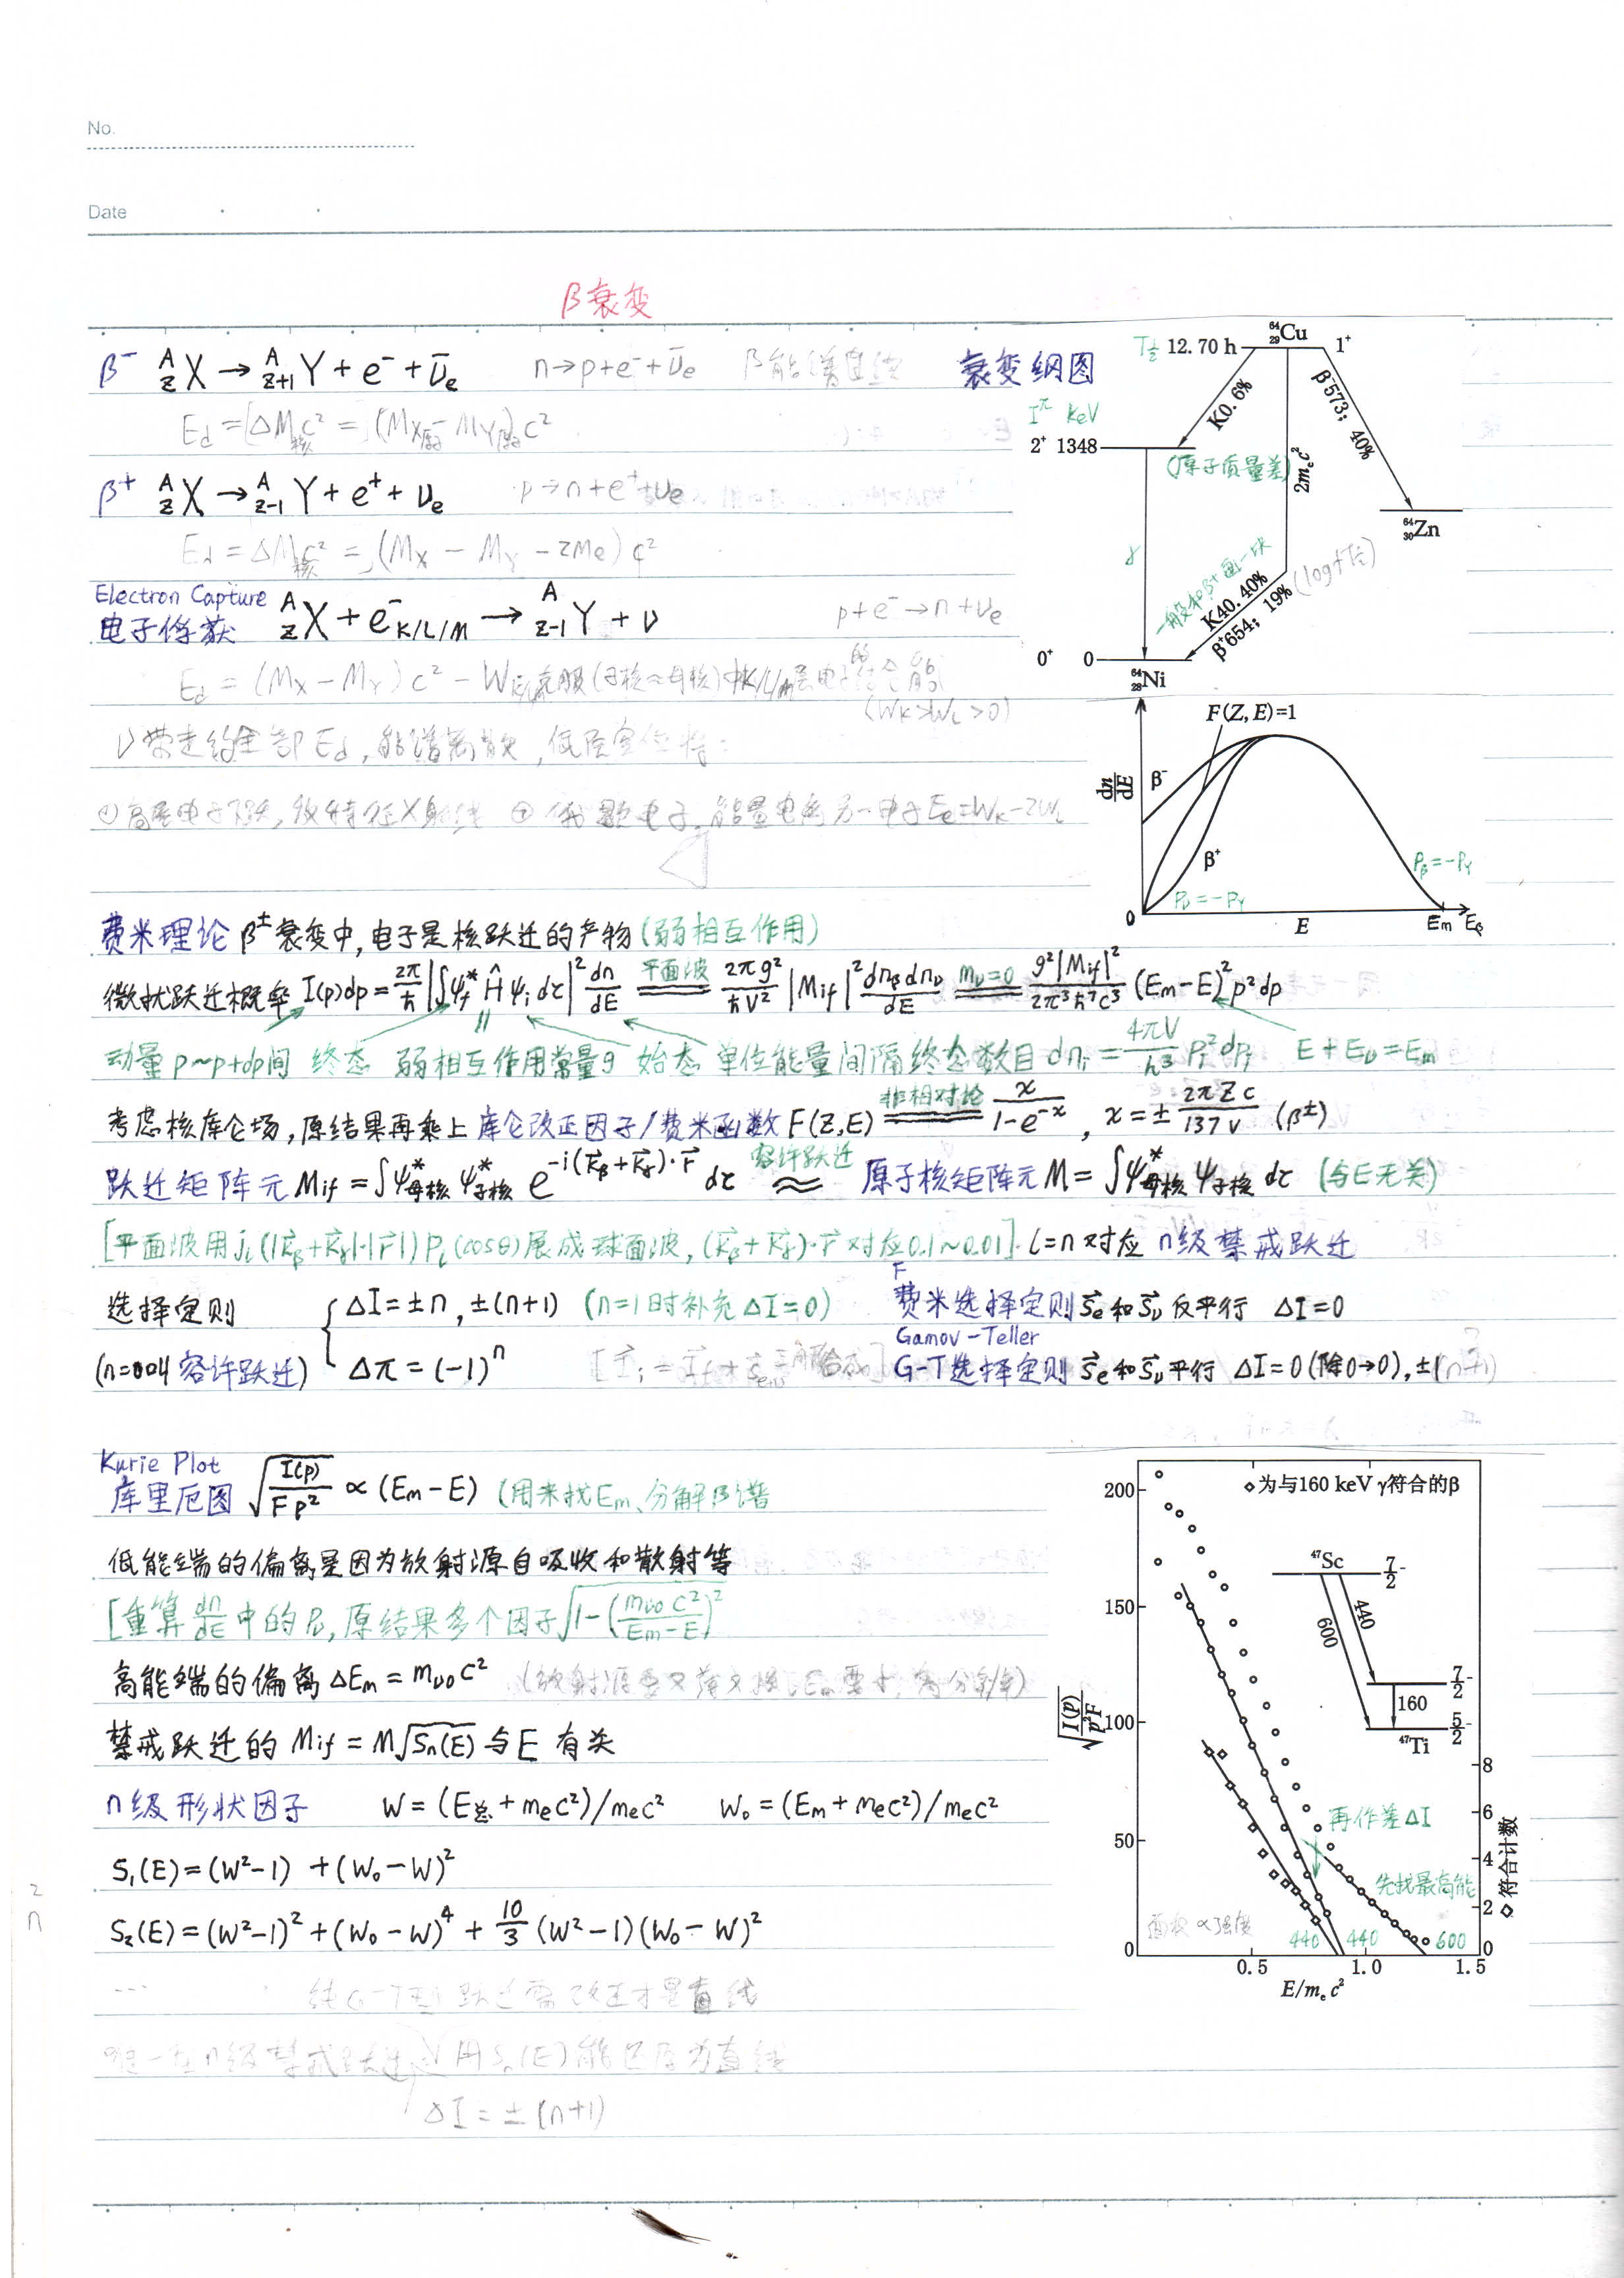 No.
Date
β衰变
β⁻ ᴬ_Z X → ᴬ_{Z+1} Y + e⁻ + ν̄e n→p+e⁻+ν̄e β能谱连续
Ed = ΔM核c² = (MX原子 − MY原子)c²
β⁺ ᴬ_Z X → ᴬ_{Z-1} Y + e⁺ + νe p→n+e⁺+νe
Ed = ΔM核c² = (MX − MY − 2Me)c²
Electron Capture
电子俘获 ᴬ_Z X + e⁻K/L/M → ᴬ_{Z-1} Y + ν p+e⁻→n+νe
Ed = (MX − MY)c² − Wi
(WK>WL>0)
ν带走约全部Ed, 能谱离散, 低层空位将:
①高层电子下跃, 放特征X射线 ② 俄歇电子, 能量电离另一电子Ee=WK−2WL
衰变纲图
T½ 12.70 h ⁶⁴₂₉Cu 1⁺
I^π KeV
K0.6%
β⁻573; 40%
2⁺ 1348
(原子质量差)
2mec²
⁶⁴₃₀Zn
γ
一般和β⁺画一块
(logfT½)
K40.40%
β⁺654; 19%
0⁺ 0
⁶⁴₂₈Ni
F(Z, E)=1
dn/dE
β⁻
β⁺
Pν=−PY
Pβ=−PY
0 E Em Eβ
费米理论 β±衰变中, 电子是核跃迁的产物 (弱相互作用)
微扰跃迁概率 I(p)dp = 2π/ℏ |∫ψf* Ĥ ψi dτ|² dn/dE ═平面波═ 2πg²/ℏV² |Mif|² dnβdnν/dE ═mν=0═ g²|Mif|²/2π³ℏ⁷c³ (Em−E)² p²dp
动量p~p+dp间 终态 弱相互作用常量g 始态 单位能量间隔终态数目 dni = 4πV/h³ Pi²dPi E+Eν=Em
考虑核库仑场, 原结果再乘上 库仑改正因子/费米函数 F(Z,E) ═非相对论═ x/(1−e^{−x}) , x=± 2πZc/137v (β±)
跃迁矩阵元 Mif = ∫ψ*母核 ψ*子核 e^{−i(k⃗β+k⃗γ)·r⃗} dτ 容许跃迁 ≈ 原子核矩阵元 M=∫ψ*母核 ψ子核 dτ (与E无关)
[平面波用 jl(|k⃗β+k⃗γ|·|r⃗|)Pl(cosθ)展成球面波, (k⃗β+k⃗γ)·r⃗ 对应0.1~0.01]. l=n 对应 n级禁戒跃迁
选择定则 { ΔI=±n, ±(n+1) (n=1时补充 ΔI=0)
F
费米选择定则 S⃗e和S⃗ν 反平行 ΔI=0
Gamov-Teller
(n=0叫容许跃迁) Δπ=(−1)ⁿ
G-T选择定则 S⃗e和S⃗ν平行 ΔI=0(除0→0), ±(n+1)
Kurie Plot
库里厄图 √(I(p)/Fp²) ∝ (Em−E) (用来找Em、分解β谱
低能端的偏离是因为放射源自吸收和散射等
[重算 dn/dE 中的Pν, 原结果多个因子 √(1−(mν0c²/(Em−E))²)
高能端的偏离 ΔEm = mν0c²
禁戒跃迁的 Mif = M√Sn(E) 与E有关
n级形状因子 W=(E总+mec²)/mec² W₀=(Em+mec²)/mec²
S₁(E)=(W²−1) +(W₀−W)²
S₂(E)=(W²−1)²+(W₀−W)⁴+ 10/3 (W²−1)(W₀−W)²
…
ΔI=±(n+1)
2
n
◇为与160 keV γ符合的β
200
150
100
50
0
√(I(p)/p²F)
⁴⁷Sc 7/2−
440
600
7/2−
160
5/2−
⁴⁷Ti
8
6
4
2
0
◇符合计数
再作差ΔI
先找最高能
面积∝强度
440 440 600
0.5 1.0 1.5
E/mec²